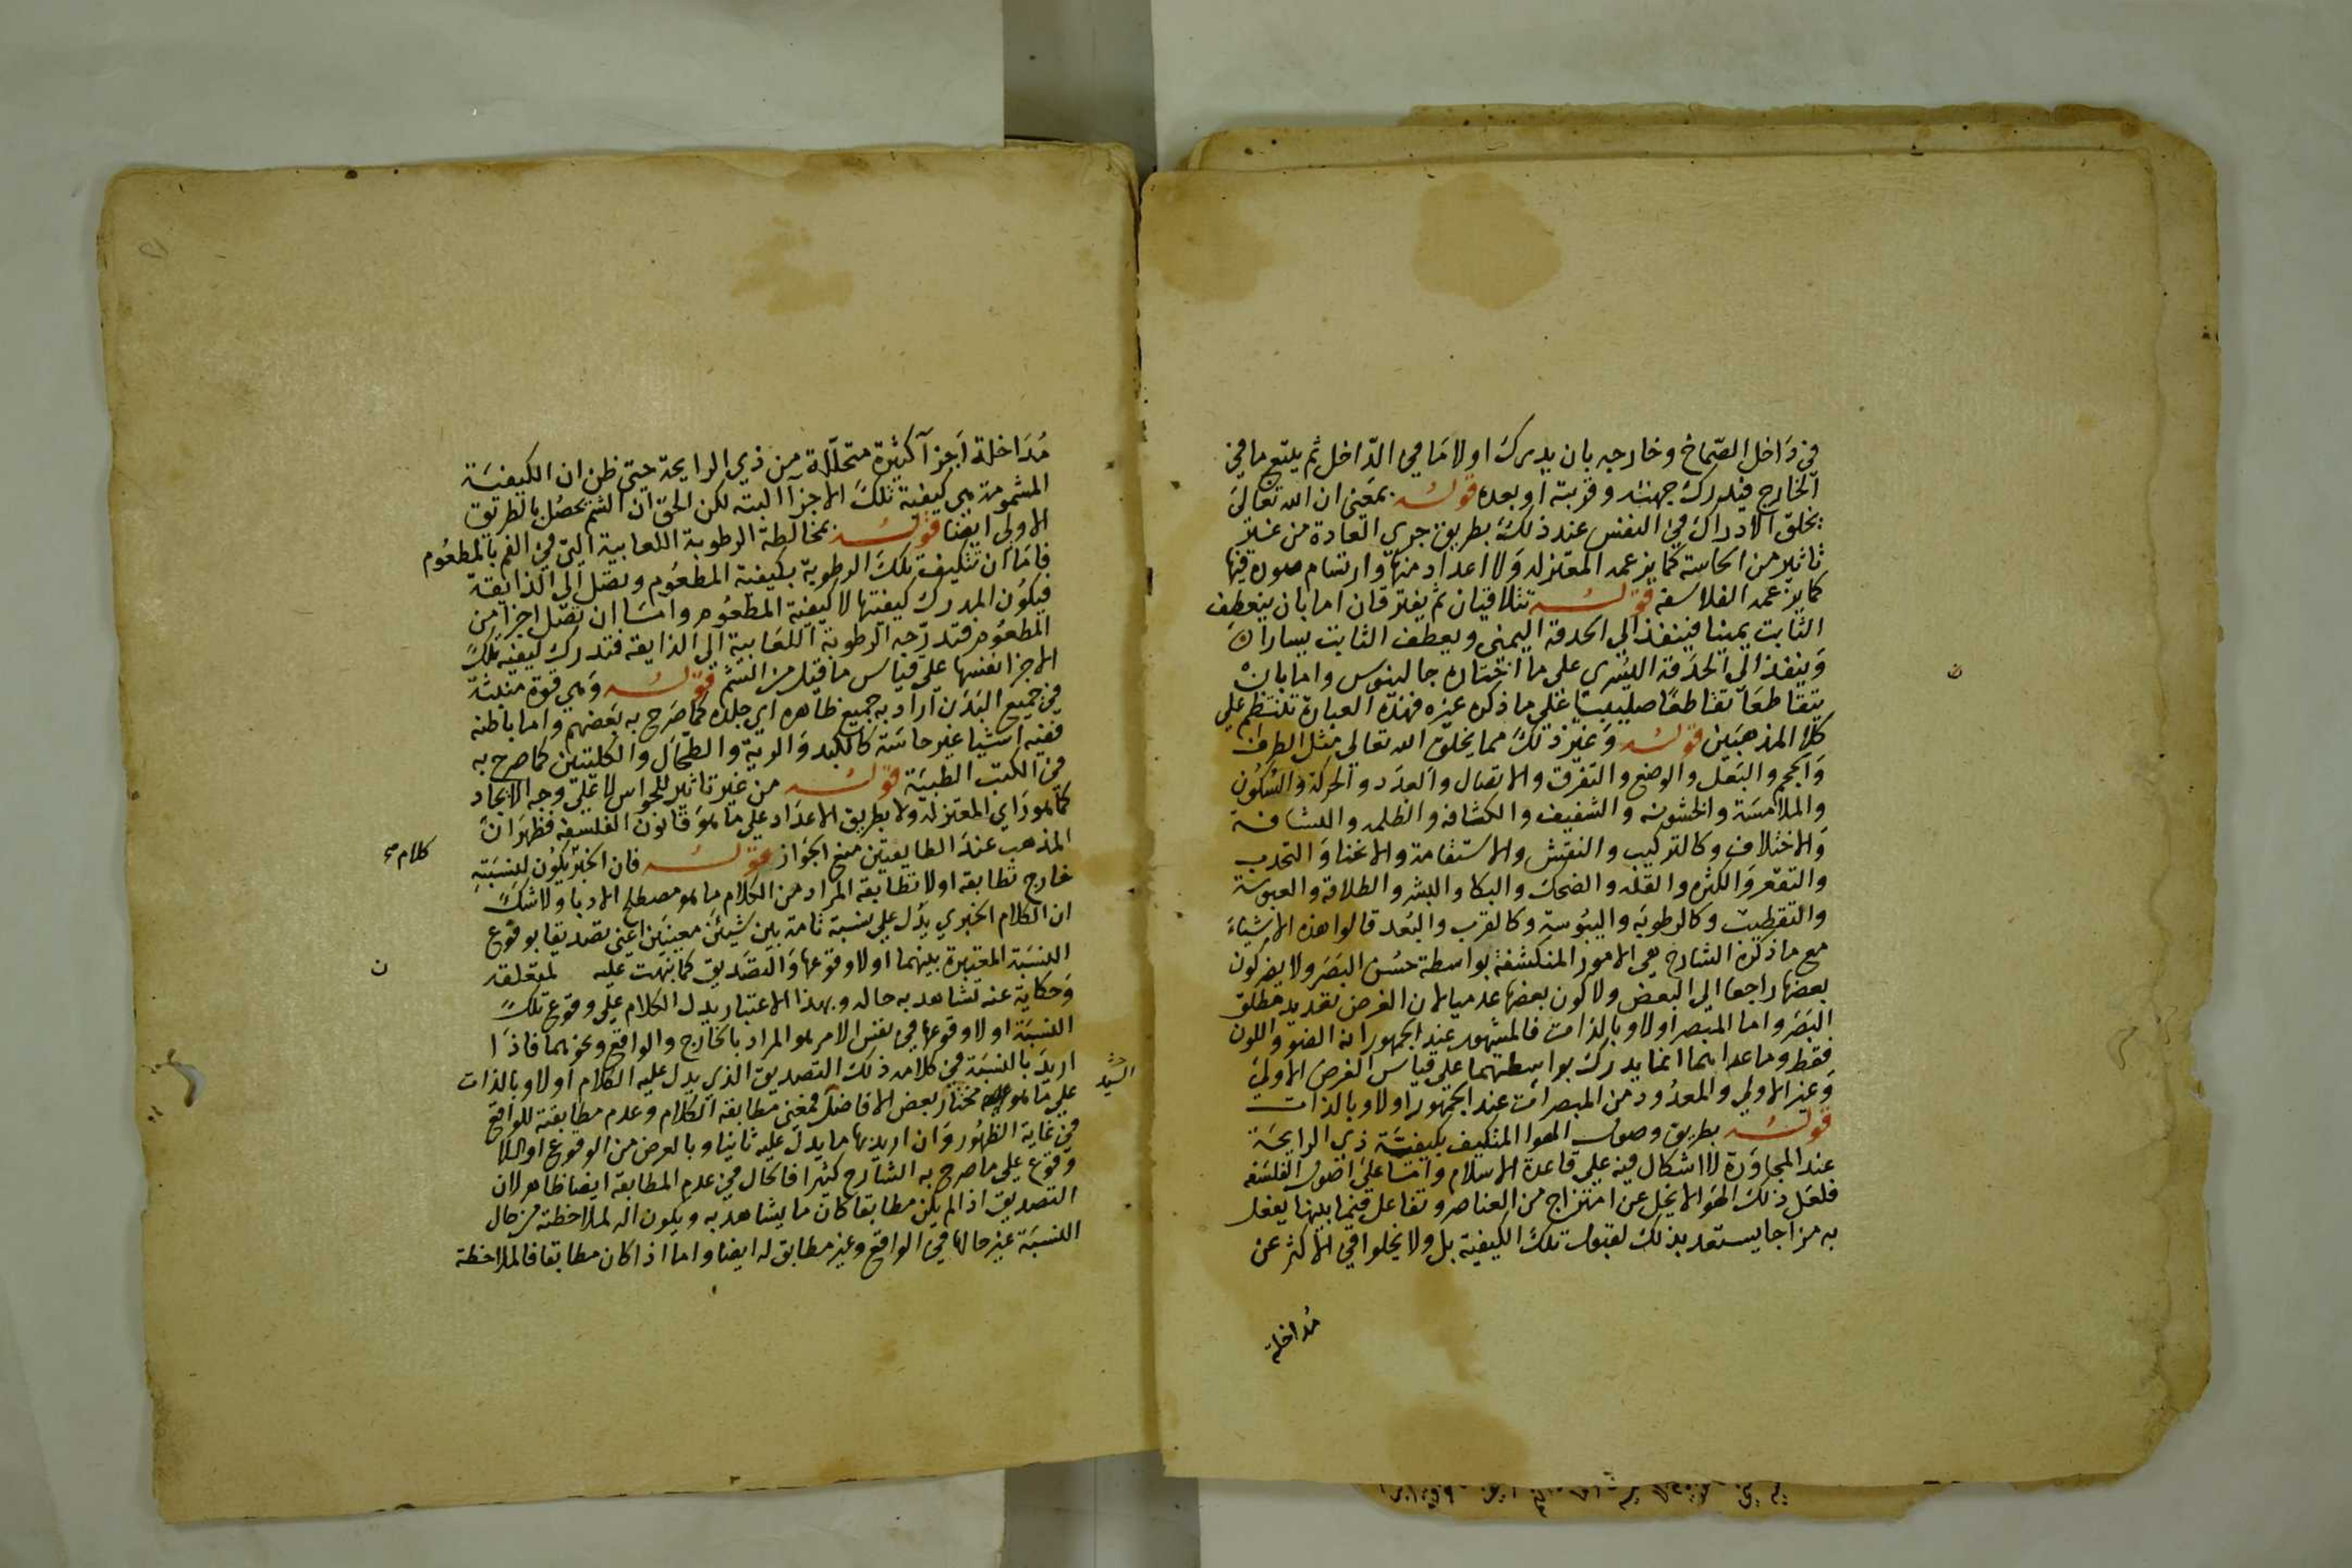 في داخل الصماخ وخارجه بان يدرك اولا ما في الداخل ثم يتبع ما في
الخارج فيدرك جهته وقربه او بعده قوله بمعنى ان الله تعالى
يخلق الادراك في النفس عند ذلك بطريق جري العادة من غير
تاثير من الحاسة كما يزعمه المعتزله ولا اعداد منها وارتسام صوره فيها
كما يزعمه الفلاسفه قوله تتلاقيان ثم يفترقان اما بان ينعطف
الثابت يمينا فينفذ الى الحدقة اليمنى ويعطف الثابت يسارا
وينفذ الى الحدقة اليسرى على ما اختاره جالينوس واما بان
يتقاطعا تقاطعا صليبيا على ما ذكره غيره فهذه العبارة تنتظم على
كلا المذهبين قوله وغير ذلك مما يخلق الله تعالى مثل الطرف
والحجم والبعد والوضع والتفرق والاتصال والعدد والحركة والسكون
والملامسة والخشونه والشفيف والكثافه والظلمه والشافة
والاختلاف وكالتركيب والنقش والاستقامة والانحنا والتحدب
والتقعر والكثره والقله والضحك والبكا والبشر والطلاقة والعبوسة
والتقطيب وكالرطوبة واليبوسة وكالقرب والبعد قالوا هذه الاشياء
مع ما ذكره الشارح هي الامور المنكشفة بواسطة حس البصر ولا يضر كون
بعضها راجعا الى البعض ولا كون بعضها عدميا لان الغرض تعديد مطلق
البصر واما المبصر اولا وبالذات فالمشهور عند الجمهور انه الضوء واللون
فقط وما عداهما انما يدرك بواسطتهما على قياس الغرض الاولى
وغير الاولي والمعدود من المبصرات عند الجمهور اولا وبالذات
قوله بطريق وصول الهوا المتكيف بكيفية ذي الرايحة
عند المجاورة لا اشكال فيه على قاعدة الاسلام واما على اصول الفلسفه
فلعل ذلك الهوا لا يخل عن امتزاج من العناصر وتفاعل فيما بينها يفعل
به مزاجا يستعد بذلك لقبول تلك الكيفية بل ولا يخلوا في الاكثر عن
مداخلة
مداخلة اجزا كثيرة متحللة من ذي الرايحة حتى ظن ان الكيفية
المشمومة هي كيفية تلك الاجزا البته لكن الحق ان الشم يحصل بالطريق
الاولى ايضا قوله بمخالطة الرطوبة اللعابية التي في الفم بالمطعوم
فاما ان تتكيف تلك الرطوبة بكيفية المطعوم وتصل الى الذايقة
فيكون المدرك كيفيتها لا كيفية المطعوم واما ان تصل اجزا من
المطعوم فتدرجه الرطوبة اللعابية الى الذايقه فتدرك كيفيه تلك
الاجزا نفسها على قياس ما قيل من الشم قوله وهي قوة منبثة
في جميع البدن اراد به جميع ظاهره اي جلده كما صرح به بعضهم واما باطنه
ففيه اشيا غير حاسة كالكبد والرية والطحال والكليتين كما صرح به
في الكتب الطبية قوله من غير تاثير للحواس لا على وجه الايجاد
كما هو راي المعتزله ولا بطريق الاعداد على ما هو قانون الفلسفه فظهر ان
المذهب عند الطايفتين منع الجواز قوله فان الخبر يكون لنسبته
كلام صح
خارج تطابقه او لا تطابقه المراد من الكلام ما هو مصطلح الادبا ولا شك
ان الكلام الخبري يدل على نسبة تامة بين شيئين معينين اعني تصديقا بوقوع
النسبة المعتبرة بينهما او لا وقوعها والتصديق كما نبهت عليه لمتعلقه
ن
وحكاية عنه تشاهد به حاله وبهذا الاعتبار يدل الكلام على وقوع تلك
النسبة او لا وقوعها في نفس الامر هو المراد بالخارج والواقع ونحوهما فاذا
اريد بالنسبة في كلامه ذلك التصديق الذي يدل عليه الكلام اولا وبالذات
على ما هو مختار بعض الافاضل فمعنى مطابقة الكلام وعدم مطابقته للواقع
السيد
في غاية الظهور وان اريد بها ما يدل عليه ثانيا وبالعرض من الوقوع او اللا
وقوع على ما صرح به الشارح كثيرا فالحال في عدم المطابقة ايضا ظاهر لان
التصديق اذا لم يكن مطابقا كان ما يشاهد به ويكون اله لملاحظته من حال
النسبة غير حالها في الواقع وغير مطابق له ايضا واما اذا كان مطابقا فالملاحظة